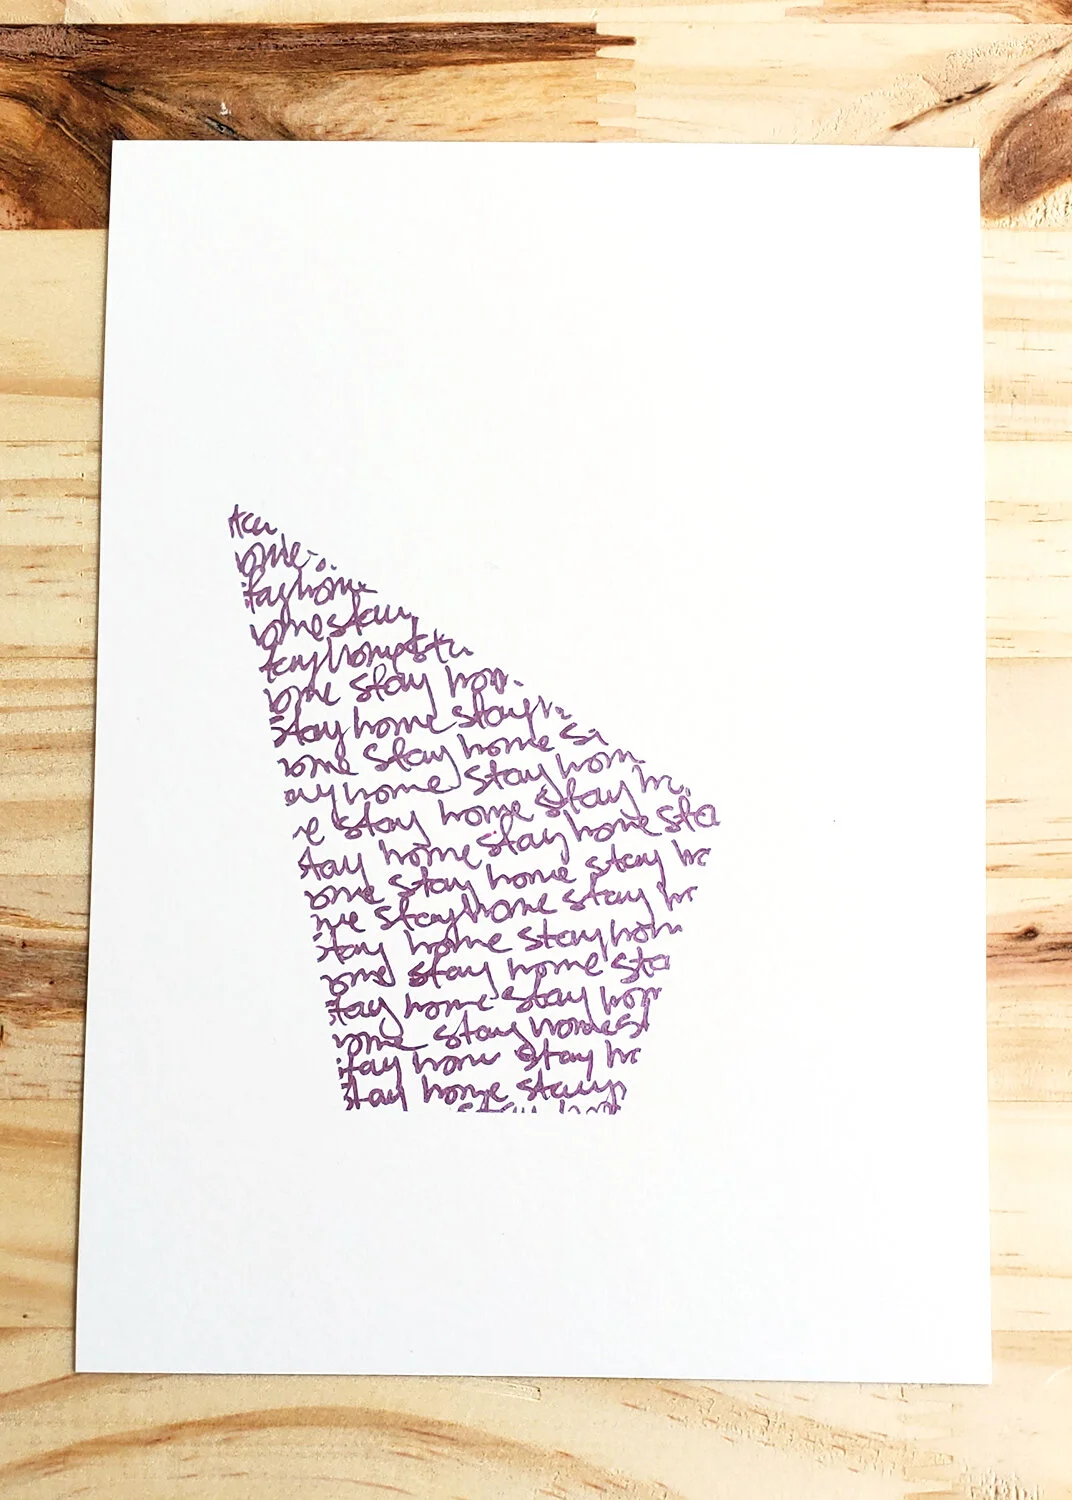 ome
tay home
ome stay
tay home st
ome stay hom
stay home stay h
ome stay home st
ay home stay hom
e stay home stay ho
stay home stay home sta
ome stay home stay ho
me stay home stay ho
stay home stay hom
ome stay home sta
stay home stay hom
home stay home st
stay home stay ho
stay home stay
stay hom